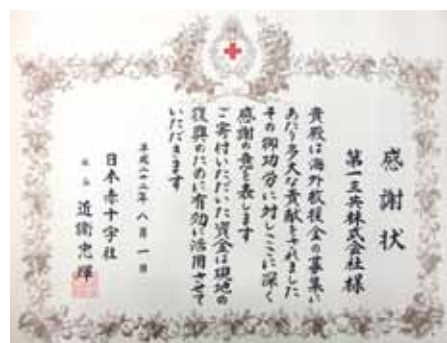 感謝状
第一三共株式会社様
貴殿は海外救援金の募集に
あたり多大な貢献をされました
その御功労に対しここに深く
感謝の意を表します
ご寄付いただいた資金は現地の
復興のために有効に活用させて
いただきます
平成二十二年八月一日
日本赤十字社
社長 近衞忠煇